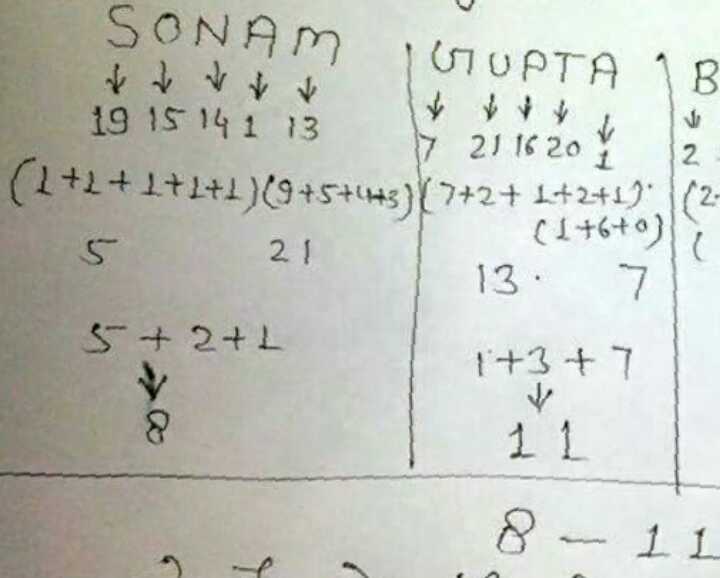 SONAM
↓ ↓ ↓ ↓ ↓
19 15 14 1 13
(1+1+1+1+1)(9+5+4+3)
5 21
5+2+1
↓
8
GUPTA
↓ ↓ ↓ ↓ ↓
7 21 16 20 1
(7+2+1+2+1)
(1+6+0)
13. 7
1+3+7
↓
11
B
↓
2
(2
(
8 - 11